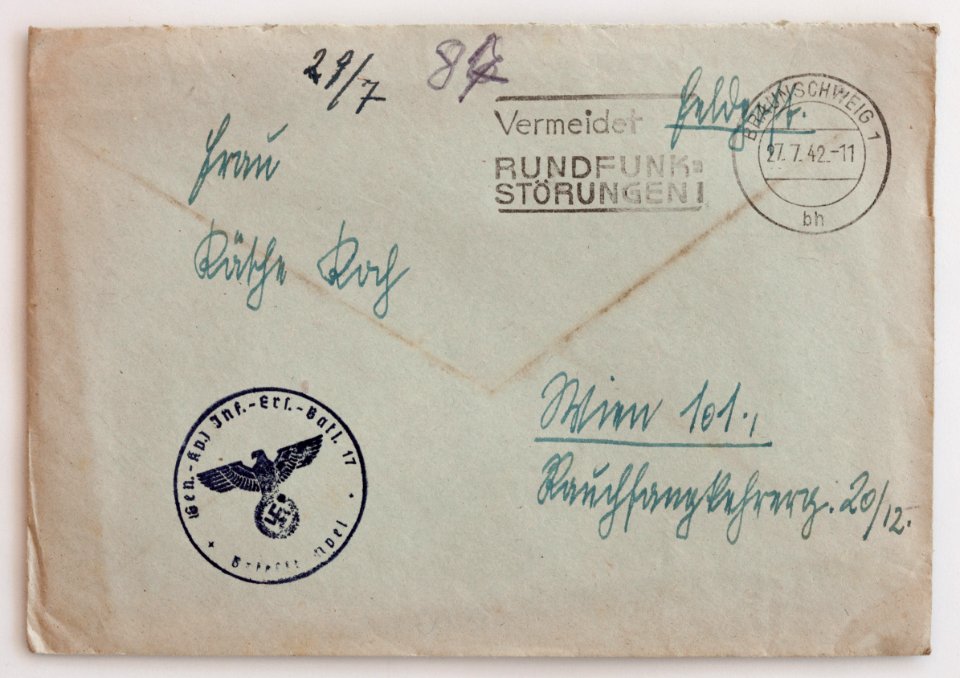 29/7
8
Feldpost.
Vermeidet
RUNDFUNK=
STÖRUNGEN!
BRAUNSCHWEIG 1
27.7.42.-11
bh
Frau
Käthe Koch
Wien 101.,
Rauchfangkehrerg. 20/12.
(Gen.-Kp.) Inf.-Ers.-Batl. 17